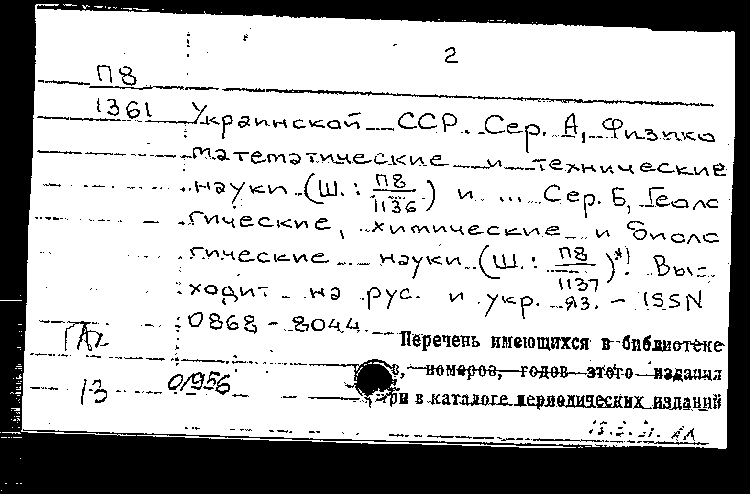 2
П8
1361 Украинской ССР. Сер. А, Физико
математические и технические
науки (Ш.: П8/1136) и ... Сер. Б, Геоло
гические, химические и биоло
гические науки (Ш.: П8/1137)*! Вы-
ходит на рус. и укр. яз. - ISSN
0868-8044.
Перечень имеющихся в библиотеке
в, номеров, годов этого издания
ри в каталоге периодических изданий
13 01956